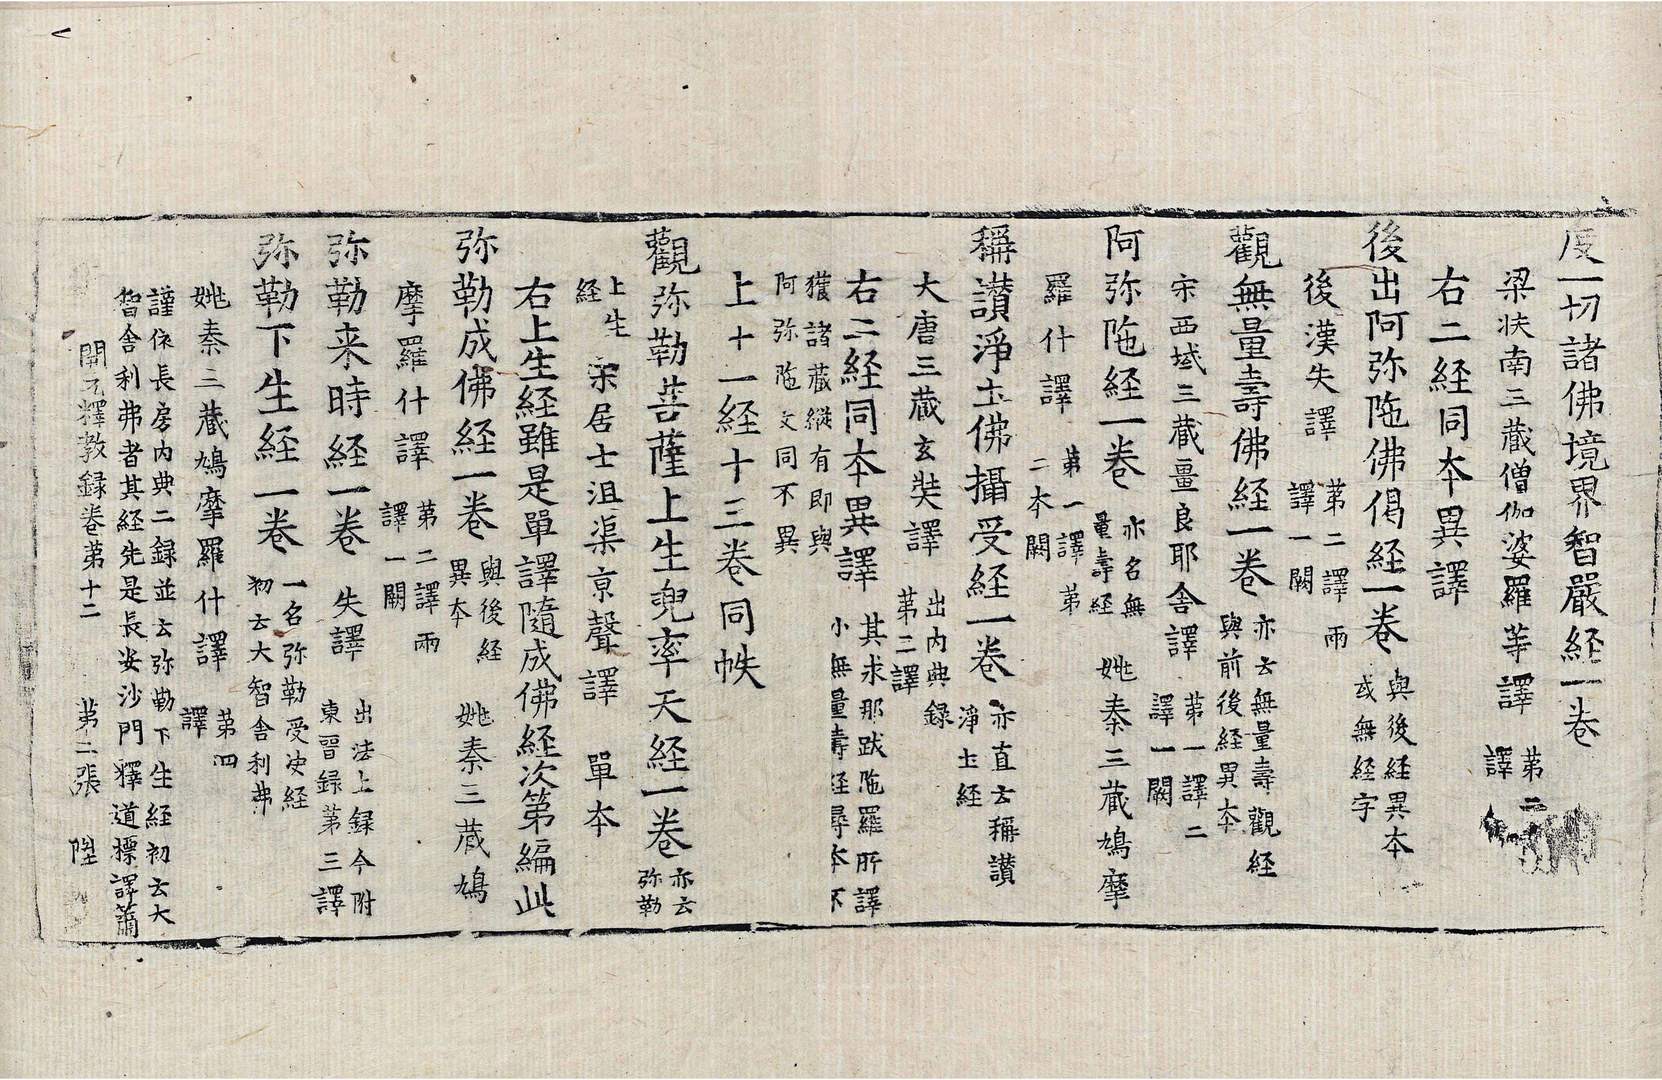 度一切諸佛境界智嚴経一卷
梁扶南三藏僧伽婆羅等譯 第二譯
右二経同本異譯
後出阿弥陁佛偈経一卷 與後経異本或無経字
後漢失譯 第二譯兩譯一闕
觀無量壽佛経一卷 亦云無量壽觀経與前後経異本
宋西域三藏畺良耶舍譯 第一譯二譯一闕
阿弥陁経一卷 亦名無量壽経 姚秦三藏鳩摩
羅什譯 第一譯第二本闕
稱讃淨土佛攝受経一卷 亦直云稱讃淨土経
大唐三藏玄奘譯 出内典録第三譯
右二経同本異譯 其求那跋陁羅所譯小無量壽経尋本不
獲諸藏縱有即與阿弥陁文同不異
上十一経十三卷同帙
觀弥勒菩薩上生兜率天経一卷 亦云弥勒
上生経 宋居士沮渠京聲譯 單本
右上生経雖是單譯隨成佛経次第編此
弥勒成佛経一卷 與後経異本 姚秦三藏鳩
摩羅什譯 第二譯兩譯一闕
弥勒来時経一卷 失譯 出法上録今附東晉録第三譯
弥勒下生経一卷 一名弥勒受决経初云大智舍利弗
姚秦三藏鳩摩羅什譯 第四譯
謹依長房内典二録並云弥勒下生経初云大
智舍利弗者其経先是長安沙門釋道摽譯蕭
開元釋教録卷第十二 第二張 陞